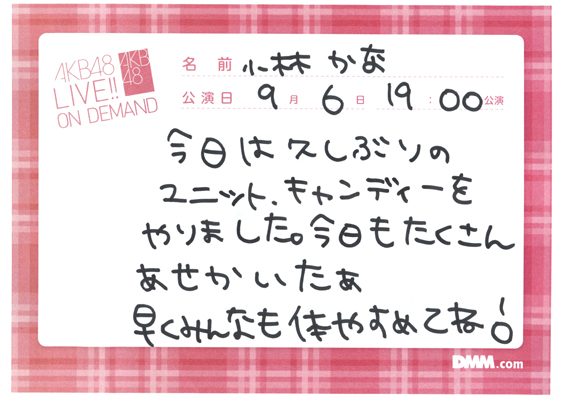 AKB48
LIVE!!
ON DEMAND
AKB
48
名 前 小林 かな
公演日 9 月 6 日 19:00 公演
今日は久しぶりの
ユニット、キャンディーを
やりました。今日もたくさん
あせかいたぁ
早くみんなも体やすめてね!
DMM.com